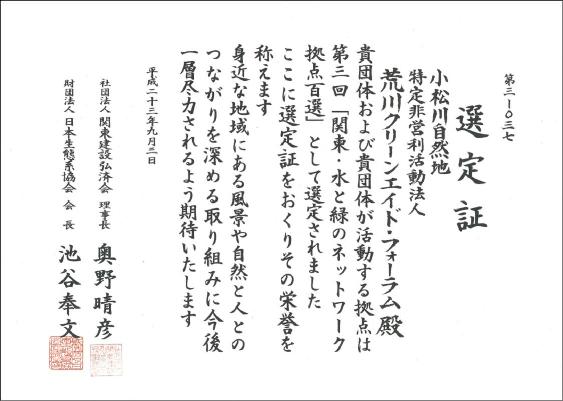 第三－〇三七
選定証
小松川自然地
特定非営利活動法人
荒川クリーンエイド・フォーラム殿
貴団体および貴団体が活動する拠点は
第三回「関東・水と緑のネットワーク
拠点百選」として選定されました
ここに選定証をおくりその栄誉を
称えます
身近な地域にある風景や自然と人との
つながりを深める取り組みに今後
一層尽力されるよう期待いたします
平成二十三年九月三日
社団法人 関東建設弘済会 理事長 奥野晴彦
財団法人 日本生態系協会 会長 池谷奉文